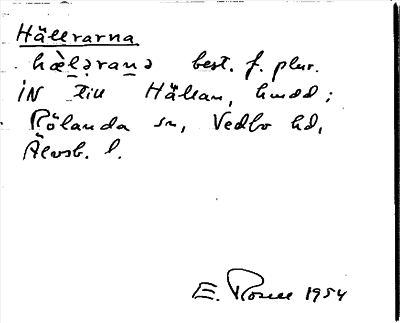 Hällrarna
hæ̀l̠əran̠ə best. f. plur.
iN till Hällan, hmdd;
Rölanda sn, Vedbo hd,
Älvsb. l.
E. Rosell 1954